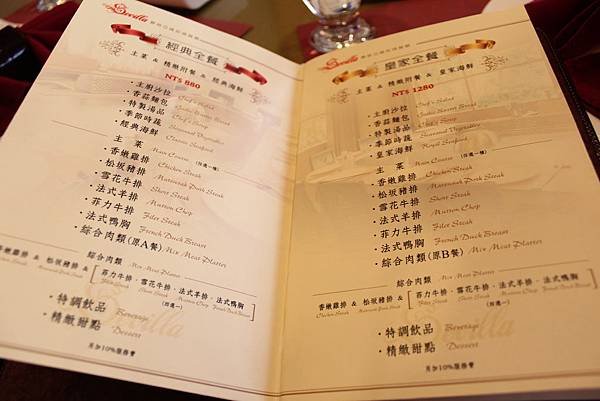 Sevilla
經典全餐
主菜 & 精緻附餐 & 經典海鮮
NT$ 880
·主廚沙拉 Chef's Salad
·香蒜麵包
·特製湯品 Chef's Soup
·季節時蔬 Seasonal Vegetables
·經典海鮮 Classic Seafood
主菜 Main Course (任選一種)
·香嫩雞排 Chicken Steak
·松坂豬排 Matsusaka Pork Steak
·雪花牛排 Short Steak
·法式羊排 Mutton Chop
·菲力牛排 Filet Steak
·法式鴨胸 French Duck Breast
·綜合肉類(原A餐) Mix Meat Platter
綜合肉類 Mix Meat Platter
香嫩雞排 & 松坂豬排 & [菲力牛排·雪花牛排·法式羊排·法式鴨胸]
Chicken Steak Matsusaka Pork Steak Filet Steak Short Steak Mutton Chop French Duck Breast
(四選一)
·特調飲品 Beverage
·精緻甜點 Dessert
另加10%服務費
Sevilla
皇家全餐
主菜 & 精緻附餐 & 皇家海鮮
NT$ 1280
·主廚沙拉 Chef's Salad
·香蒜麵包 Garlic Bread
·特製湯品 Chef's Soup
·季節時蔬 Seasonal Vegetables
·皇家海鮮 Royal Seafood
主菜 Main Course (任選一種)
·香嫩雞排 Chicken Steak
·松坂豬排 Matsusaka Pork Steak
·雪花牛排 Short Steak
·法式羊排 Mutton Chop
·菲力牛排 Filet Steak
·法式鴨胸 French Duck Breast
·綜合肉類(原B餐) Mix Meat Platter
綜合肉類 Mix Meat Platter
香嫩雞排 & 松坂豬排 & [菲力牛排·雪花牛排·法式羊排·法式鴨胸]
Chicken Steak Matsusaka Pork Steak Filet Steak Short Steak Mutton Chop French Duck Breast
(四選一)
·特調飲品 Beverage
·精緻甜點 Dessert
另加10%服務費